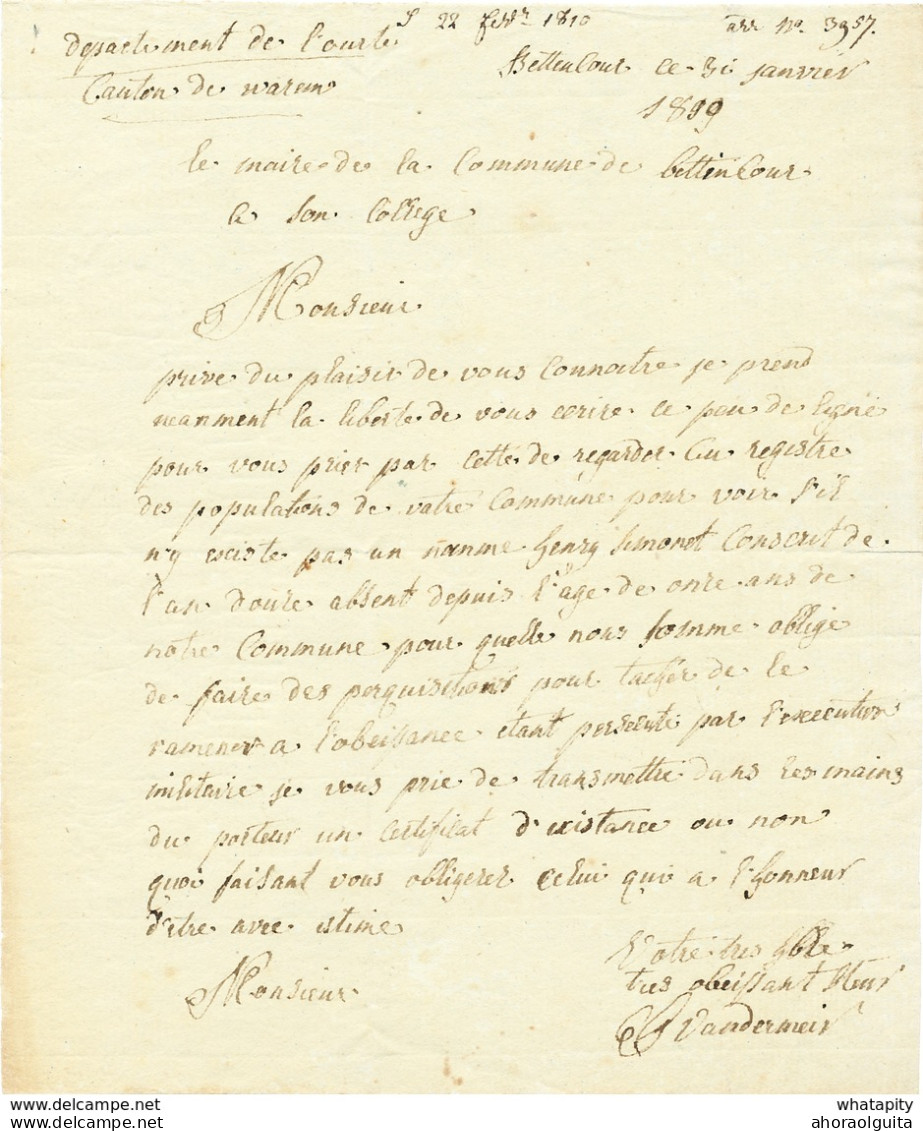 S 22 fevr 1810
arr no. 3957.
Departement de l'ourte
Canton de warem
Bettencour ce 31 janvier
1809
le maire de la Commune de bettincour
a son College
Monsieur
prive du plaisir de vous Connoitre je prend
neanment la liberte de vous ecrire ce peu de ligne
pour vous prier par cette de regarder au registre
des populations de votre Commune pour voir s'il
n'y existe pas un nomme henry Simonet Conscrit de
l'an douze absent depuis l'age de onze ans de
notre Commune pour quelle nous somme oblige
de faire des perquisitions pour tacher de le
ramener a l'obeissance etant persecute par l'execution
militaire je vous prie de transmettre dans les mains
du porteur un Certificat d'existance ou non
quoi faisant vous obligerer celui qui a l'honneur
d'etre avec estime
Votre tres hble
Monsieur
tres obeissant Steur
Vandermeir
whatapity
ahoraolguita